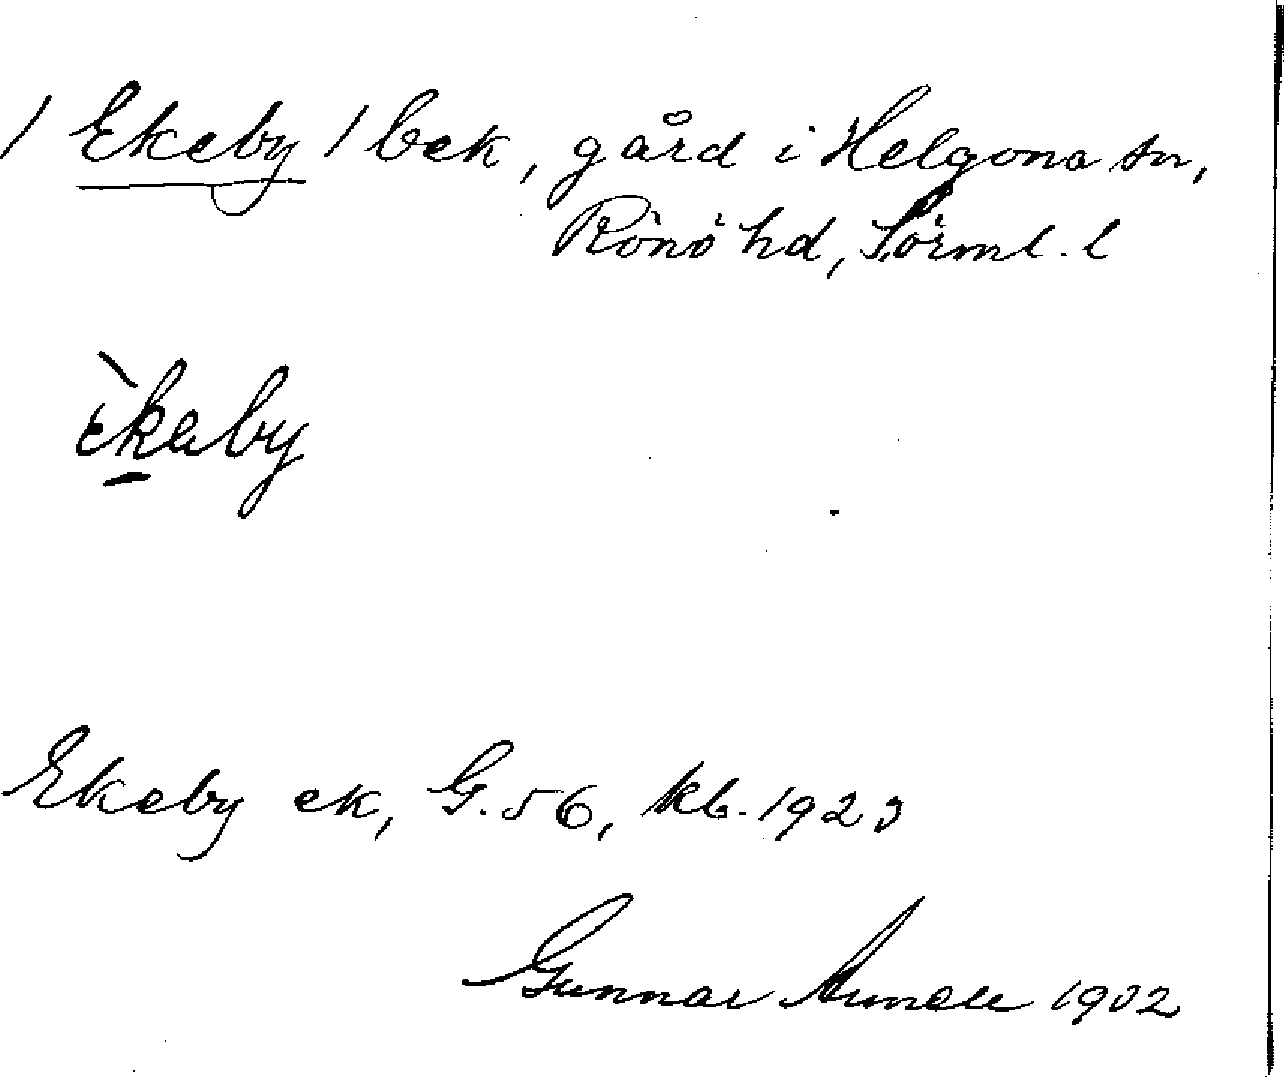 / Ekeby / bek, gård i Helgona sn,
Rönö hd, Sörml. l
èkeby
Ekeby ek, G. 56, kb. 1920
Gunnar 1902